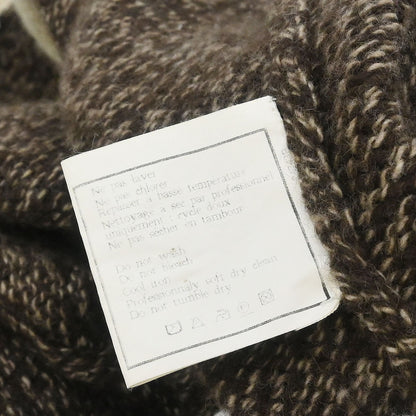 Ne pas laver
Ne pas chlorer
Repasser à basse température
Nettoyage à sec par professionnel
uniquement : cycle doux
Ne pas sécher en tambour
Do not wash
Do not bleach
Cool iron
Professionally soft dry clean
Do not tumble dry